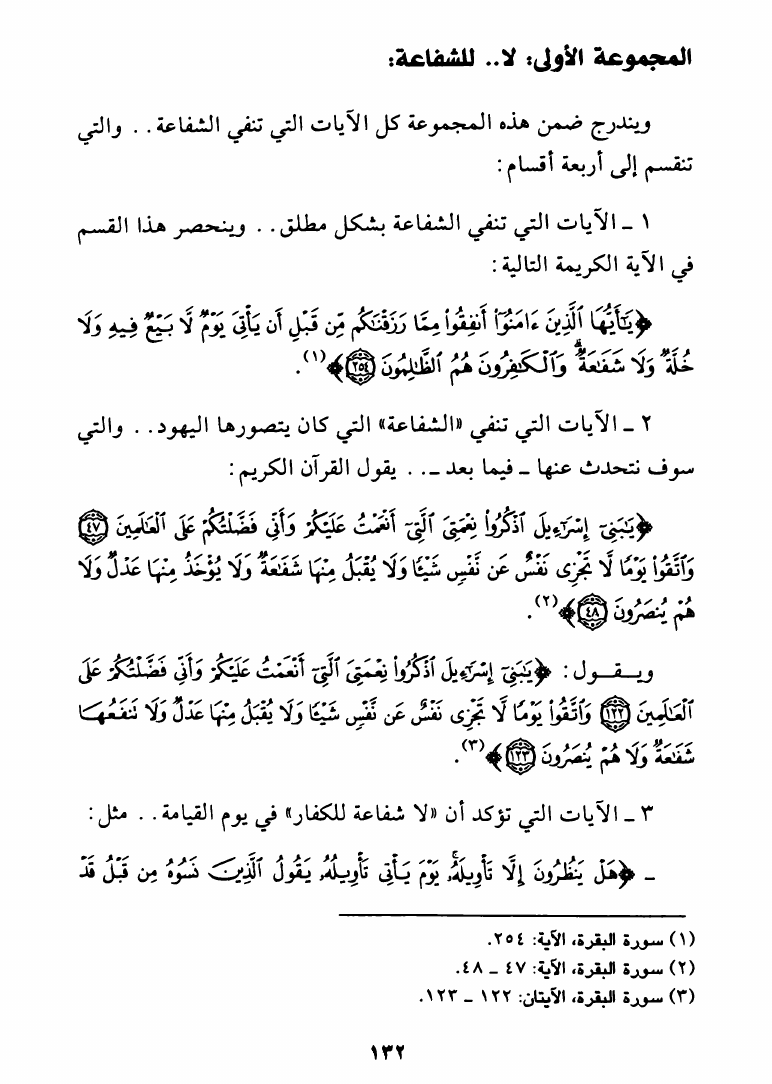 المجموعة الأولى: لا.. للشفاعة:
ويندرج ضمن هذه المجموعة كل الآيات التي تنفي الشفاعة.. والتي
تنقسم إلى أربعة أقسام:
١ - الآيات التي تنفي الشفاعة بشكل مطلق.. وينحصر هذا القسم
في الآية الكريمة التالية:
﴿يَٰٓأَيُّهَا ٱلَّذِينَ ءَامَنُوٓا۟ أَنفِقُوا۟ مِمَّا رَزَقْنَٰكُم مِّن قَبْلِ أَن يَأْتِىَ يَوْمٌ لَّا بَيْعٌ فِيهِ وَلَا
خُلَّةٌ وَلَا شَفَٰعَةٌ ۗ وَٱلْكَٰفِرُونَ هُمُ ٱلظَّٰلِمُونَ ٢٥٤﴾(١).
٢ - الآيات التي تنفي «الشفاعة» التي كان يتصورها اليهود.. والتي
سوف نتحدث عنها - فيما بعد -.. يقول القرآن الكريم:
﴿يَٰبَنِىٓ إِسْرَٰٓءِيلَ ٱذْكُرُوا۟ نِعْمَتِىَ ٱلَّتِىٓ أَنْعَمْتُ عَلَيْكُمْ وَأَنِّى فَضَّلْتُكُمْ عَلَى ٱلْعَٰلَمِينَ ٤٧
وَٱتَّقُوا۟ يَوْمًا لَّا تَجْزِى نَفْسٌ عَن نَّفْسٍ شَيْـًٔا وَلَا يُقْبَلُ مِنْهَا شَفَٰعَةٌ وَلَا يُؤْخَذُ مِنْهَا عَدْلٌ وَلَا
هُمْ يُنصَرُونَ ٤٨﴾(٢).
ويـقـول: ﴿يَٰبَنِىٓ إِسْرَٰٓءِيلَ ٱذْكُرُوا۟ نِعْمَتِىَ ٱلَّتِىٓ أَنْعَمْتُ عَلَيْكُمْ وَأَنِّى فَضَّلْتُكُمْ عَلَى
ٱلْعَٰلَمِينَ ١٢٢ وَٱتَّقُوا۟ يَوْمًا لَّا تَجْزِى نَفْسٌ عَن نَّفْسٍ شَيْـًٔا وَلَا يُقْبَلُ مِنْهَا عَدْلٌ وَلَا تَنفَعُهَا
شَفَٰعَةٌ وَلَا هُمْ يُنصَرُونَ ١٢٣﴾(٣).
٣ - الآيات التي تؤكد أن «لا شفاعة للكفار» في يوم القيامة.. مثل:
- ﴿هَلْ يَنظُرُونَ إِلَّا تَأْوِيلَهُۥ ۚ يَوْمَ يَأْتِى تَأْوِيلُهُۥ يَقُولُ ٱلَّذِينَ نَسُوهُ مِن قَبْلُ قَدْ
(١) سورة البقرة، الآية: ٢٥٤.
(٢) سورة البقرة، الآية: ٤٧ - ٤٨.
(٣) سورة البقرة، الآيتان: ١٢٢ - ١٢٣.
١٣٢